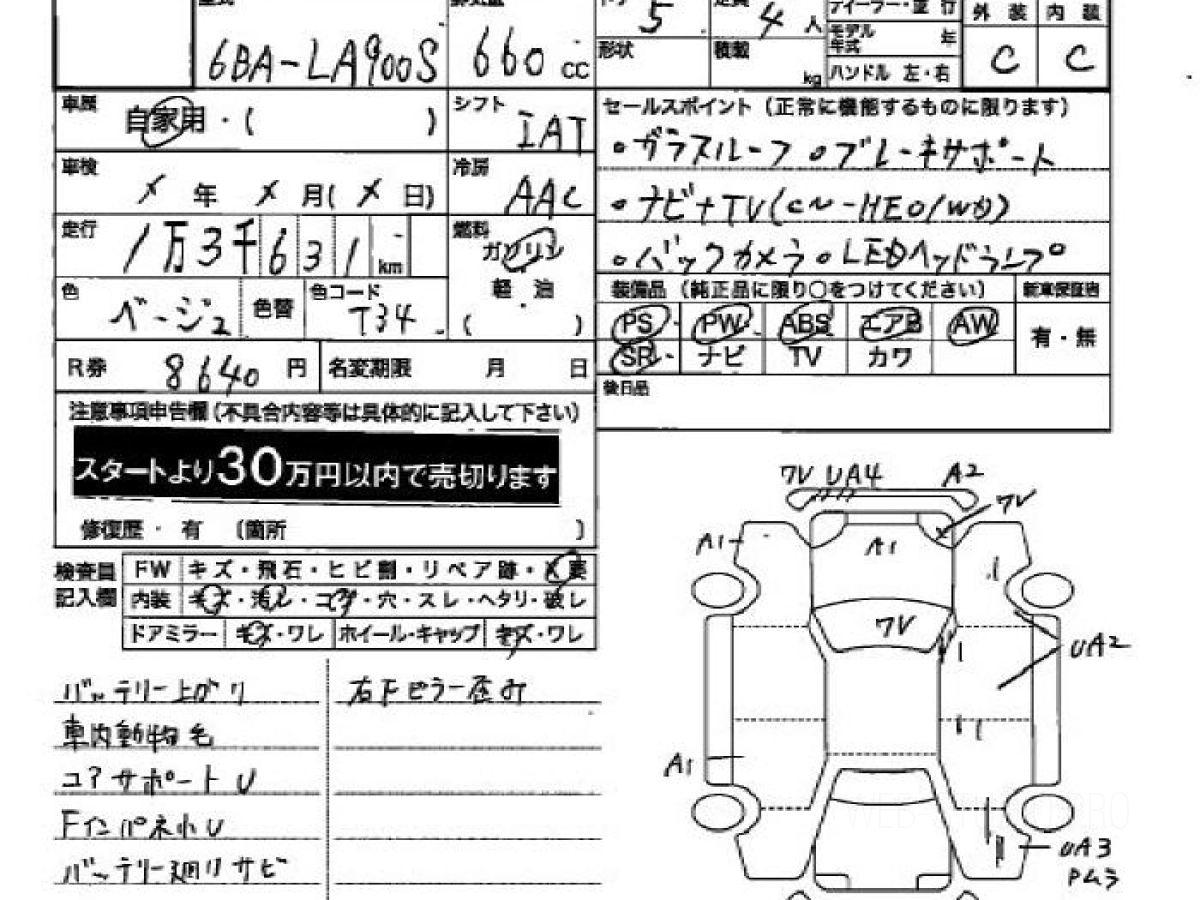 ドア 5 定員 4 人 ディーラー・並行 外装 内装
6BA-LA900S 660 cc 形状 積載 kg モデル年式 年 C C
ハンドル 左・右
車歴 自家用・( ) シフト IAT セールスポイント (正常に機能するものに限ります)
・ガラスルーフ ・ブレーキサポート
車検 X 年 X 月(X 日) 冷房 AAC ・ナビ+TV(
走行 1万3千631 km 燃料 ガソリン 軽油 ( ) ・バックカメラ ・LEDヘッドランプ
色 ベージュ 色替 色コード T34 装備品 (純正品に限り○をつけてください) 新車保証書
PS PW ABS エアB AW 有・無
SR ナビ TV カワ
R券 8640 円 名変期限 月 日 後日品
注意事項申告欄(不具合内容等は具体的に記入して下さい)
スタートより30万円以内で売切ります
修復歴・有 〔箇所 〕
検査員記入欄 FW キズ・飛石・ヒビ割・リペア跡・X要
内装 キズ・汚レ・コゲ・穴・スレ・ヘタリ・破レ
ドアミラー キズ・ワレ ホイール・キャップ キズ・ワレ
バッテリー上がり 右Fピラー歪み
車内動物毛
コアサポートU
FインパネホU
バッテリー廻りサビ
ワレ UA4 A2
ワレ
A1 A1
ワレ
UA2
A1
UA3
PM3